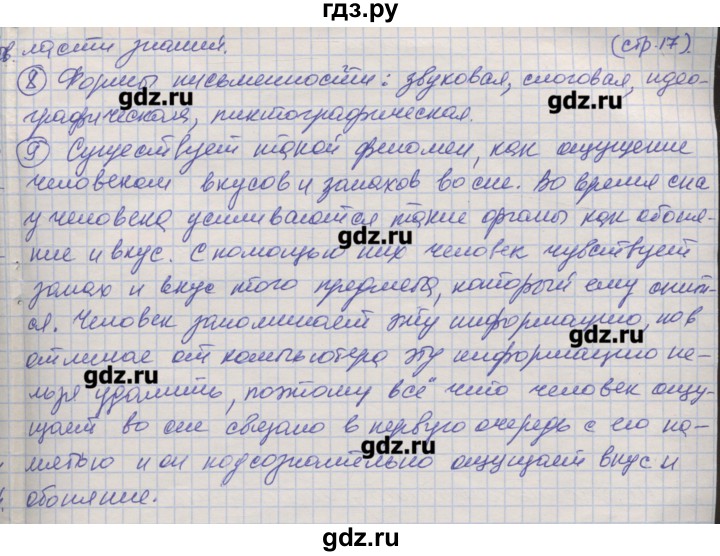 гдз.ру
ласти знаний. (стр.17).
⑧ Формы письменности: звуковая, слоговая, идео-
gdz.ru gdz.ru
графическая, пиктографическая.
⑨ Существует такой феномен, как ощущение
gdz.ru
человеком вкусов и запахов во сне. Во время сна
у человека усиливаются такие органы как обоня-
gdz.ru
ние и вкус. С помощью них человек чувствует
запах и вкус того предмета, который ему снит-
ся. Человек запоминает эту информацию, но в
gdz.ru gdz.ru
отличие от компьютера эту информацию не-
gdz.ru
льзя удалить, поэтому всё что человек ощу-
щает во сне связано в первую очередь с его па-
gdz.ru
мятью и он подсознательно ощущает вкус и
обоняние.
gdz.ru